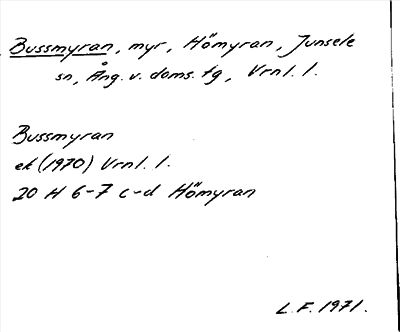 Bussmyran, myr, Hömyran, Junsele
sn, Ång. v. doms. tg, Vrnl. l.
Bussmyran
ek (1970) Vrnl. l.
20 H 6-7 c-d Hömyran
L.F. 1971.